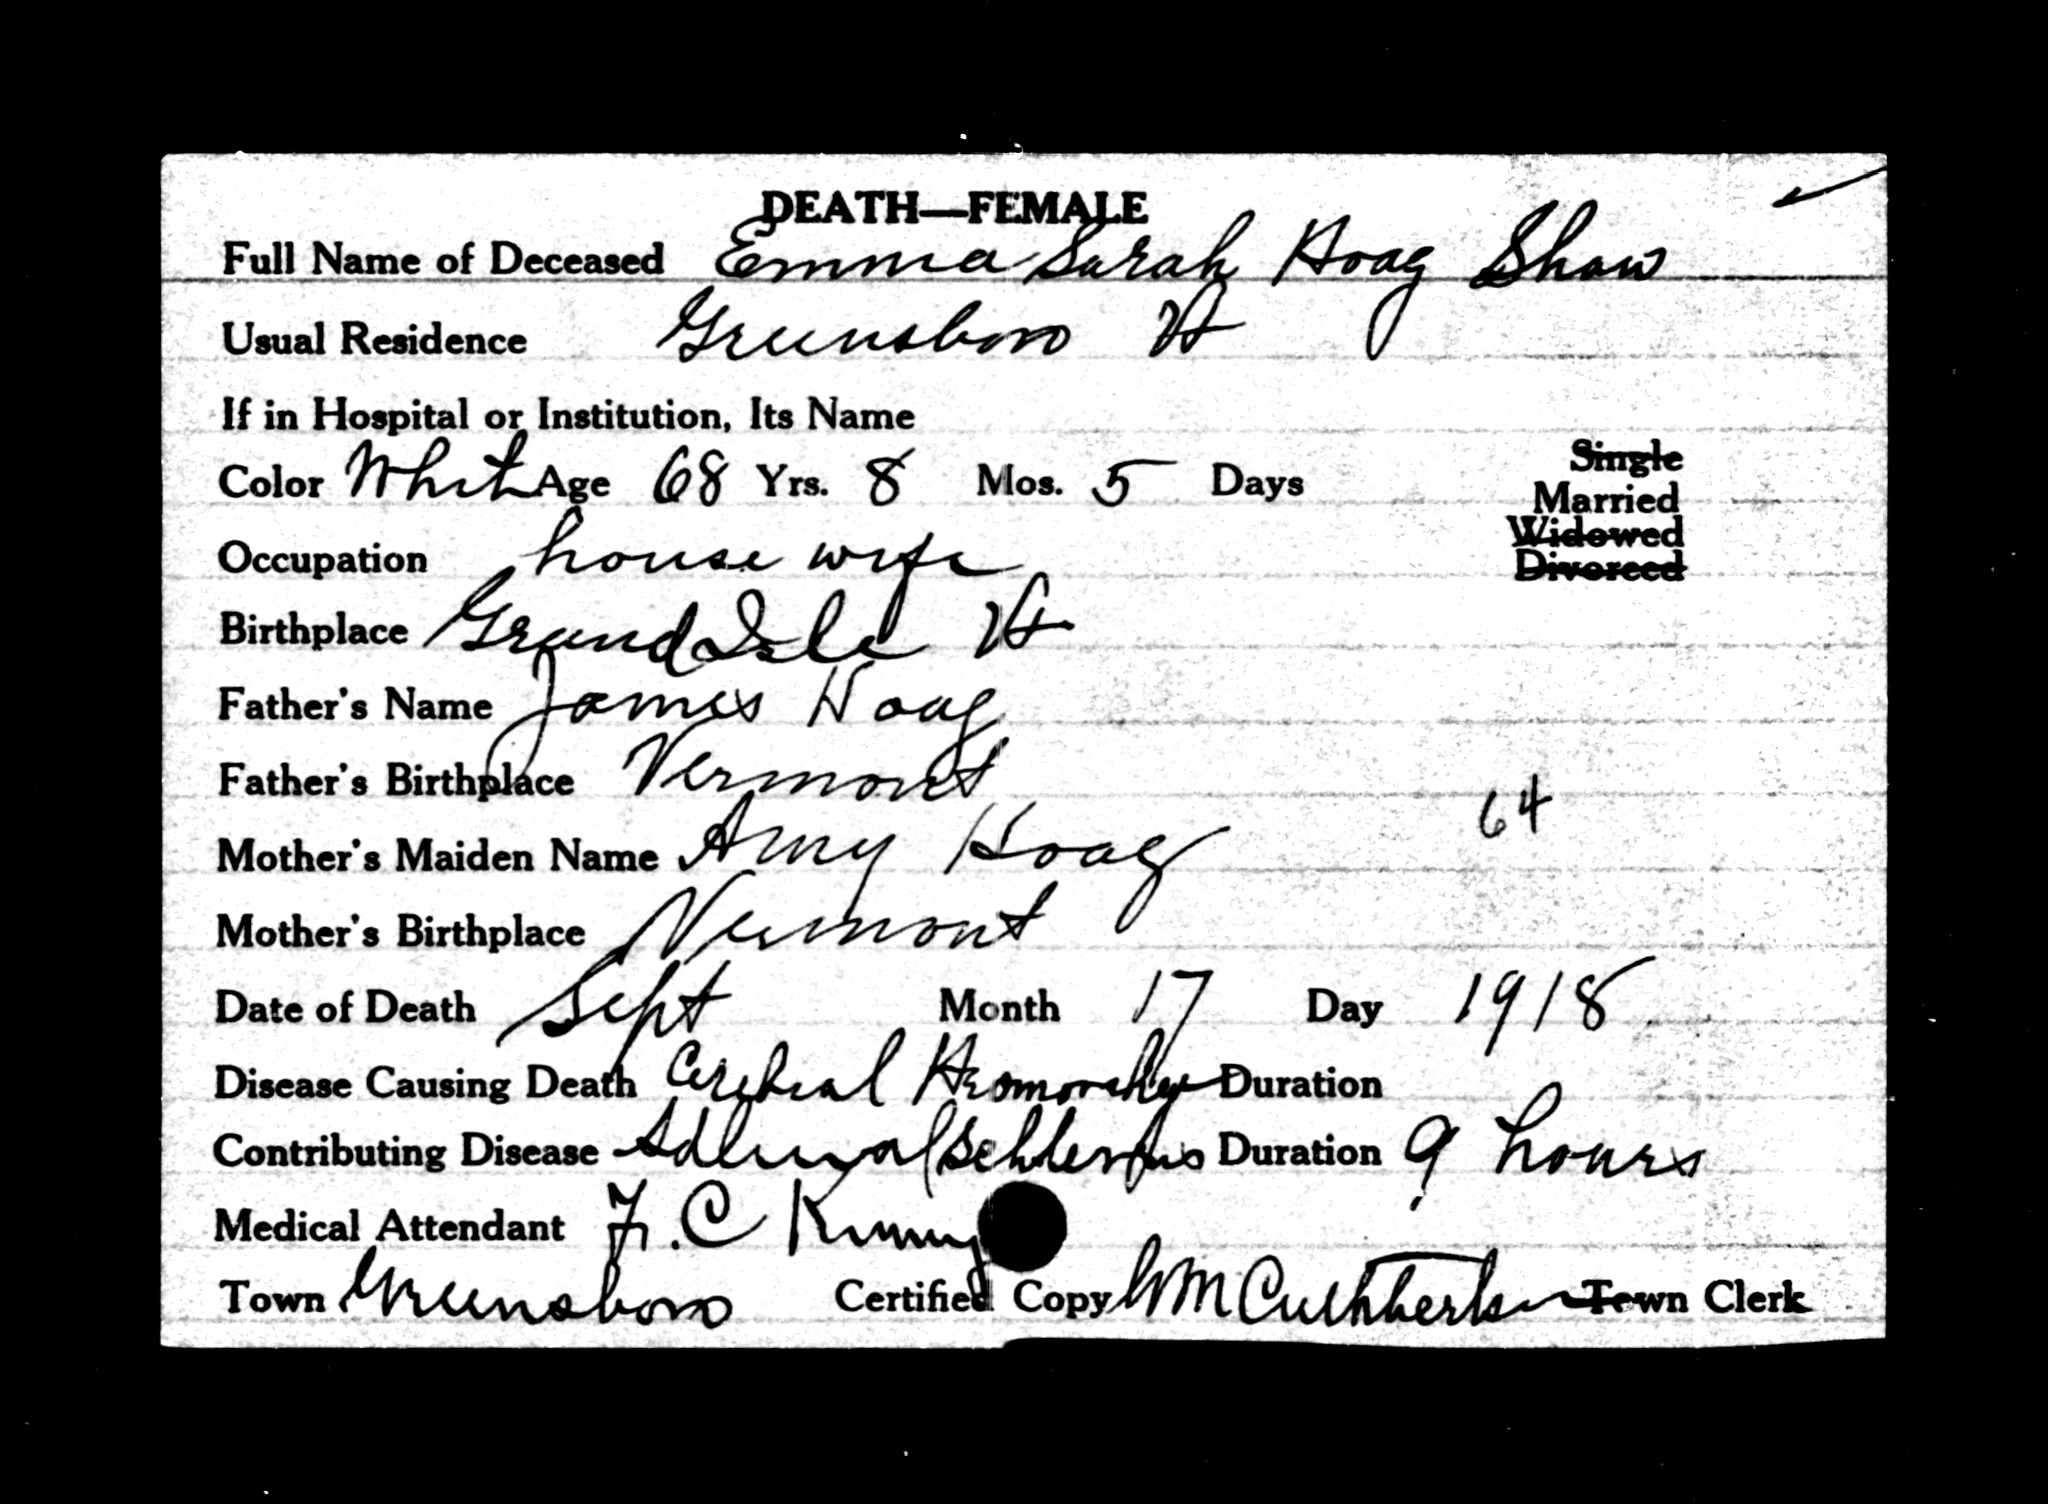 DEATH—FEMALE
Full Name of Deceased Emma Sarah Hoag Shaw
Usual Residence Greensboro Vt
If in Hospital or Institution, Its Name
Color White Age 68 Yrs. 8 Mos. 5 Days
Single
Married
Widowed
Divorced
Occupation house wife
Birthplace Grand Isle Vt
Father's Name James Hoag
Father's Birthplace Vermont
64
Mother's Maiden Name Amy Hoag
Mother's Birthplace Vermont
Date of Death Sept Month 17 Day 1918
Disease Causing Death Cerebral Duration
Contributing Disease Duration 9 hours
Medical Attendant F. C Kinney
Town Greensboro Certified Copy WM Cuthbertson Town Clerk